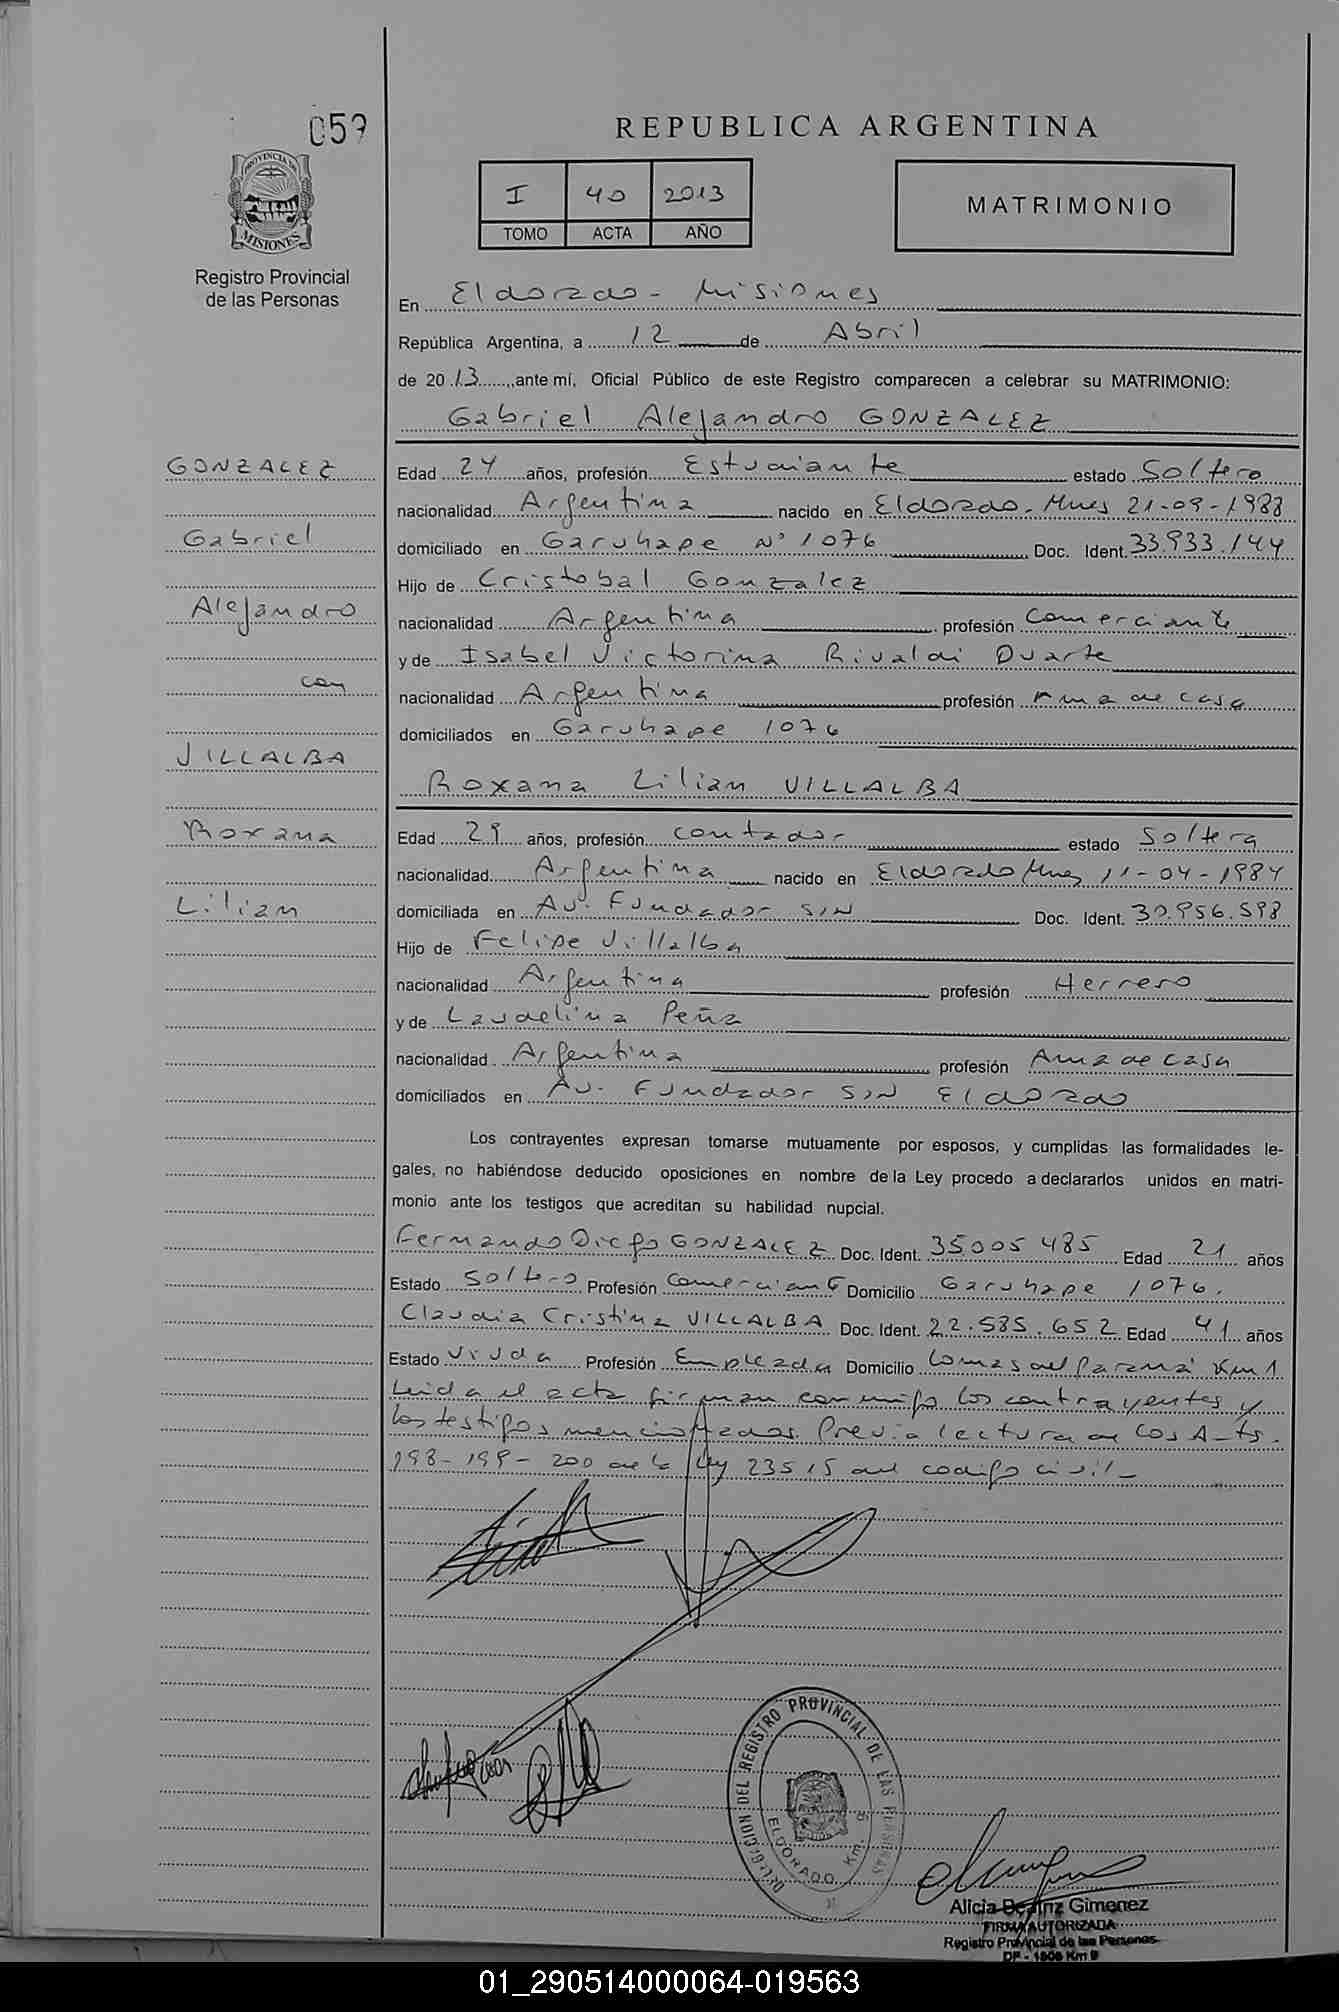 059
PROVINCIA DE
MISIONES
Registro Provincial
de las Personas
REPUBLICA ARGENTINA
I 40 2013
TOMO ACTA AÑO
MATRIMONIO
En Eldorado - Misiones
República Argentina, a 12 de Abril
de 2013, ante mí, Oficial Público de este Registro comparecen a celebrar su MATRIMONIO:
Gabriel Alejandro GONZALEZ
GONZALEZ
Gabriel
Alejandro
con
VILLALBA
Roxana
Lilian
Edad 24 años, profesión Estudiante estado Soltero
nacionalidad Argentina nacido en Eldorado - Mnes 21-09-1988
domiciliado en Garuhape N° 1076 Doc. Ident. 33.933.144
Hijo de Cristobal Gonzalez
nacionalidad Argentina profesión Comerciante
y de Isabel Victorina Rivaldi Duarte
nacionalidad Argentina profesión Ama de casa
domiciliados en Garuhape 1076
Roxana Lilian VILLALBA
Edad 29 años, profesión contador estado Soltera
nacionalidad Argentina nacido en Eldorado Mnes 11-04-1984
domiciliada en Av. Fundador S/N Doc. Ident. 30.956.598
Hijo de Felipe Villalba
nacionalidad Argentina profesión Herrero
y de Laudelina Peña
nacionalidad Argentina profesión Ama de casa
domiciliados en Av. Fundador S/N Eldorado
Los contrayentes expresan tomarse mutuamente por esposos, y cumplidas las formalidades le-
gales, no habiéndose deducido oposiciones en nombre de la Ley procedo a declararlos unidos en matri-
monio ante los testigos que acreditan su habilidad nupcial.
Fernando Diego GONZALEZ Doc. Ident. 35.005.485 Edad 21 años
Estado Soltero Profesión Comerciante Domicilio Garuhape 1076.
Claudia Cristina VILLALBA Doc. Ident. 22.585.652 Edad 41 años
Estado Viuda Profesión Empleada Domicilio Lomas del Paraná Km 1
Leida el acta firman conmigo los contrayentes y
los testigos mencionados. Previa lectura de los Arts.
198-199-200 de la Ley 23515 del codigo civil-
DELEGACION DEL REGISTRO PROVINCIAL DE LAS PERSONAS
ELDORADO Km. 9
Alicia Beatriz Gimenez
FIRMA AUTORIZADA
Registro Provincial de las Personas
DP - 1806 Km 9
01_290514000064-019563